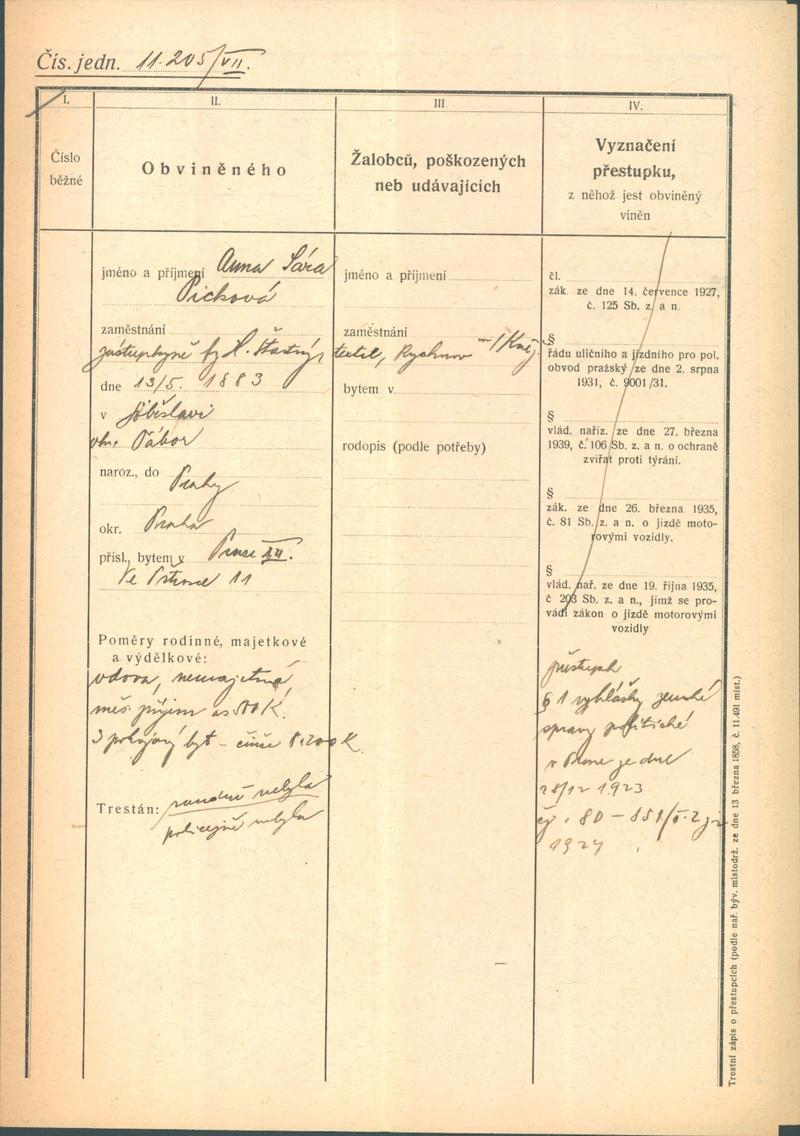 Čís. jedn. 11.205/VII.
I.
Číslo
běžné
II.
Obviněného
III
Žalobců, poškozených
neb udávajících
IV.
Vyznačení
přestupku,
z něhož jest obviněný
viněn
jméno a příjmení Anna Sára
Picková
zaměstnání
zástupkyně fy
textil, Rychnov
dne 13/5. 1883
v
okr. Tábor
naroz., do Prahy
okr. Praha
přísl., bytem v Praze VII.
11
Poměry rodinné, majetkové
a výdělkové:
vdova, nemajetná,
měs. příjem as 500 K.
3 pokojový byt – činže 8.200 K
Trestán: soudně nebyla
policejně nebyla
jméno a příjmení
zaměstnání
bytem v
rodopis (podle potřeby)
čl.
zák. ze dne 14. července 1927,
č. 125 Sb. z. a n.
§
řádu uličního a jízdního pro pol.
obvod pražský ze dne 2. srpna
1931, č. 9001/31.
§
vlád. naříz. ze dne 27. března
1939, č. 106 Sb. z. a n. o ochraně
zvířat proti týrání.
§
zák. ze dne 26. března 1935,
č. 81 Sb. z. a n. o jízdě moto-
rovými vozidly.
§
vlád. nař. ze dne 19. října 1935,
č 203 Sb. z. a n., jímž se pro-
vádí zákon o jízdě motorovými
vozidly
přestupek
§ 1 vyhlášky zemské
správy politické
v Praze ze dne
28/12 1923
čj. 80 – 851/
1924
Trestní zápis o přestupcích (podle nař. býv. místodrž. ze dne 13 března 1858, č. 11.491 míst.)